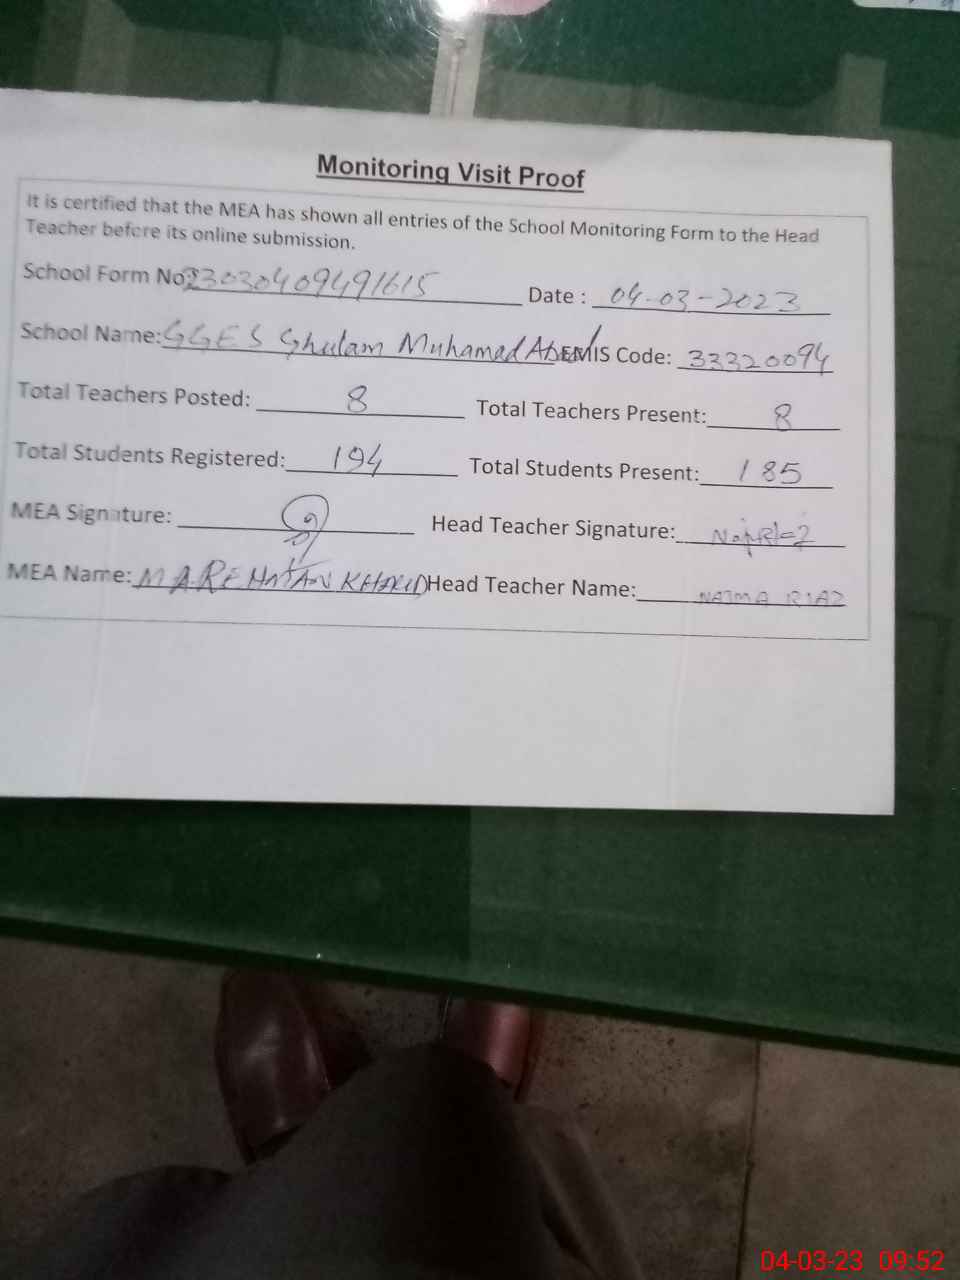 Monitoring Visit Proof
It is certified that the MEA has shown all entries of the School Monitoring Form to the Head
Teacher before its online submission.
School Form No: 23030409491615 Date : 04-03-2023
School Name: GGES Ghulam Muhamad EMIS Code: 33320094
Total Teachers Posted: 8 Total Teachers Present: 8
Total Students Registered: 194 Total Students Present: 185
MEA Signature: Head Teacher Signature:
MEA Name: KHALID Head Teacher Name: NAJMA RIAZ
04-03-23 09:52